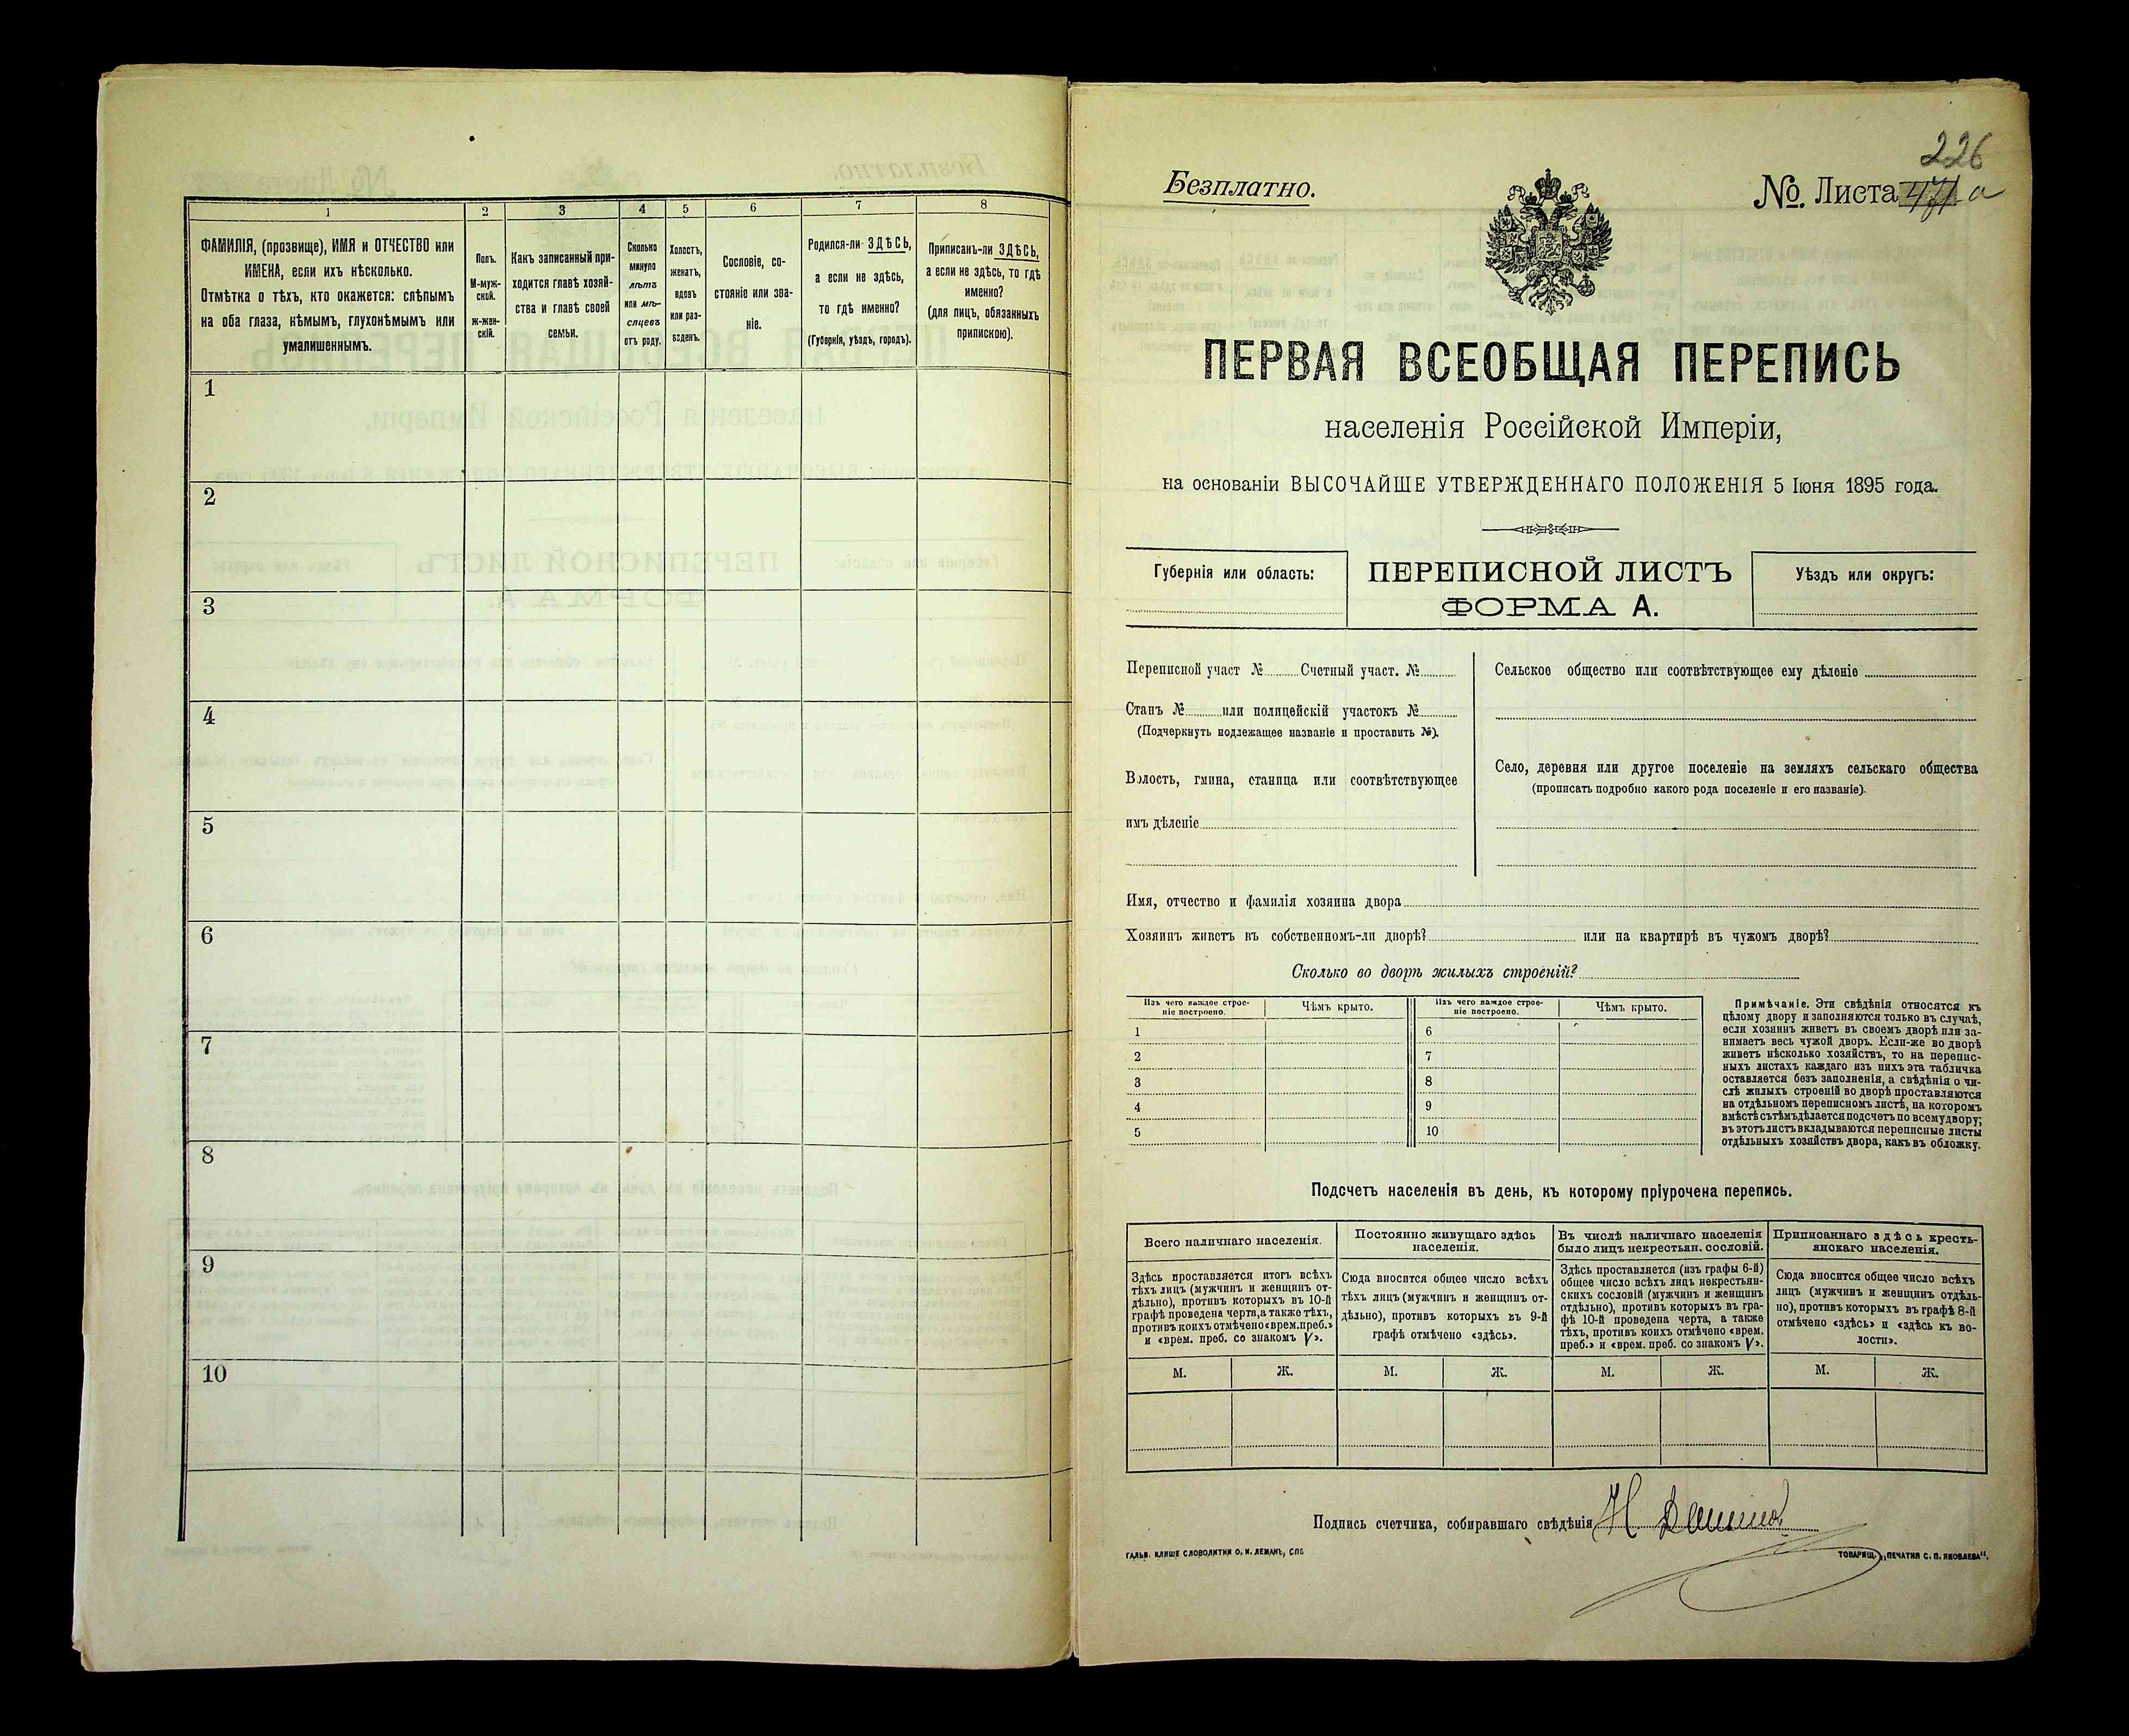 1 2 3 4 5 6 7 8
ФАМИЛІЯ, (прозвище), ИМЯ и ОТЧЕСТВО или
ИМЕНА, если ихъ нѣсколько.
Отмѣтка о тѣхъ, кто окажется: слѣпымъ
на оба глаза, нѣмымъ, глухонѣмымъ или
умалишеннымъ.
Полъ.
М-муж-
ской.
ж-жен-
скій.
Какъ записанный при-
ходится главѣ хозяй-
ства и главѣ своей
семьи.
Сколько
минуло
лѣтъ
или мѣ-
сяцевъ
отъ роду.
Холостъ,
женатъ,
вдовъ
или раз-
веденъ.
Сословіе, со-
стояніе или зва-
ніе.
Родился-ли ЗДѢСЬ,
а если не здѣсь,
то гдѣ именно?
(Губернія, уѣздъ, городъ).
Приписанъ-ли ЗДѢСЬ,
а если не здѣсь, то гдѣ
именно?
(для лицъ, обязанныхъ
припискою).
1
2
3
4
5
6
7
8
9
10
226
Безплатно.
№. Листа 471 а
ПЕРВАЯ ВСЕОБЩАЯ ПЕРЕПИСЬ
населенія Россійской Имперіи,
на основаніи ВЫСОЧАЙШЕ УТВЕРЖДЕННАГО ПОЛОЖЕНІЯ 5 Іюня 1895 года.
Губернія или область:
ПЕРЕПИСНОЙ ЛИСТЪ
ФОРМА А.
Уѣздъ или округъ:
Переписной участ № Счетный участ. №
Станъ № или полицейскій участокъ №
(Подчеркнуть подлежащее названіе и проставить №).
Волость, гмина, станица или соотвѣтствующее
имъ дѣленіе
Сельское общество или соотвѣтствующее ему дѣленіе
Село, деревня или другое поселеніе на земляхъ сельскаго общества
(прописать подробно какого рода поселеніе и его названіе).
Имя, отчество и фамилія хозяина двора
Хозяинъ живетъ въ собственномъ-ли дворѣ? или на квартирѣ въ чужомъ дворѣ?
Сколько во дворѣ жилыхъ строеній?
Изъ чего каждое строе-
ніе построено.
Чѣмъ крыто.
Изъ чего каждое строе-
ніе построено.
Чѣмъ крыто.
1 6
2 7
3 8
4 9
5 10
Примѣчаніе. Эти свѣдѣнія относятся къ
цѣлому двору и заполняются только въ случаѣ,
если хозяинъ живетъ въ своемъ дворѣ или за-
нимаетъ весь чужой дворъ. Если-же во дворѣ
живетъ нѣсколько хозяйствъ, то на перепис-
ныхъ листахъ каждаго изъ нихъ эта табличка
оставляется безъ заполненія, а свѣдѣнія о чи-
слѣ жилыхъ строеній во дворѣ проставляются
на отдѣльномъ переписномъ листѣ, на которомъ
вмѣстѣ съ тѣмъ дѣлается подсчетъ по всему двору;
въ этотъ листъ вкладываются переписные листы
отдѣльныхъ хозяйствъ двора, какъ въ обложку.
Подсчетъ населенія въ день, къ которому пріурочена перепись.
Всего наличнаго населенія.
Здѣсь проставляется итогъ всѣхъ
тѣхъ лицъ (мужчинъ и женщинъ от-
дѣльно), противъ которыхъ въ 10-й
графѣ проведена черта, а также тѣхъ,
противъ коихъ отмѣчено «врем. преб.»
и «врем. преб. со знакомъ V».
Постоянно живущаго здѣсь
населенія.
Сюда вносится общее число всѣхъ
тѣхъ лицъ (мужчинъ и женщинъ от-
дѣльно), противъ которыхъ въ 9-й
графѣ отмѣчено «здѣсь».
Въ числѣ наличнаго населенія
было лицъ некрестьян. сословій.
Здѣсь проставляется (изъ графы 6-й)
общее число всѣхъ лицъ некрестьян-
скихъ сословій (мужчинъ и женщинъ
отдѣльно), противъ которыхъ въ гра-
фѣ 10-й проведена черта, а также
тѣхъ, противъ коихъ отмѣчено «врем.
преб.» и «врем. преб. со знакомъ V».
Приписаннаго здѣсь кресть-
янскаго населенія.
Сюда вносится общее число всѣхъ
лицъ (мужчинъ и женщинъ отдѣль-
но), противъ которыхъ въ графѣ 8-й
отмѣчено «здѣсь» и «здѣсь къ во-
лости».
М. Ж. М. Ж. М. Ж. М. Ж.
Подпись счетчика, собиравшаго свѣдѣнія Н
ГАЛЬВ. КЛИШЕ СЛОВОЛИТНИ О. И. ЛЕМАНЪ, СПБ
ТОВАРИЩ. „ПЕЧАТНЯ С. П. ЯКОВЛЕВА“.